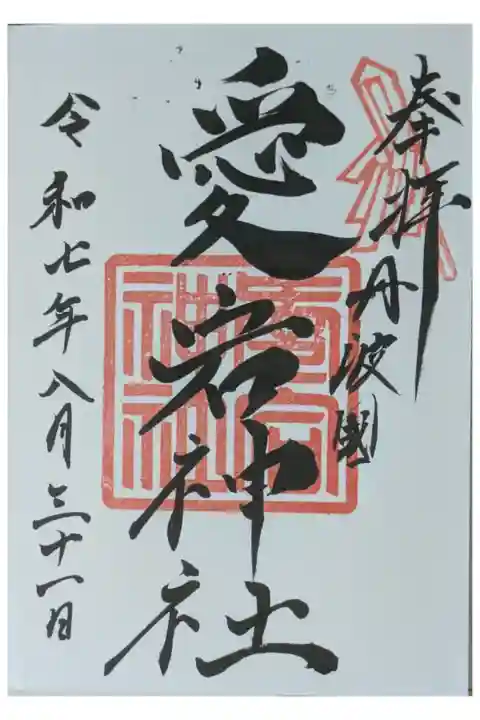 奉拝
丹波國
愛宕神社
愛宕
神社
令和七年八月三十一日